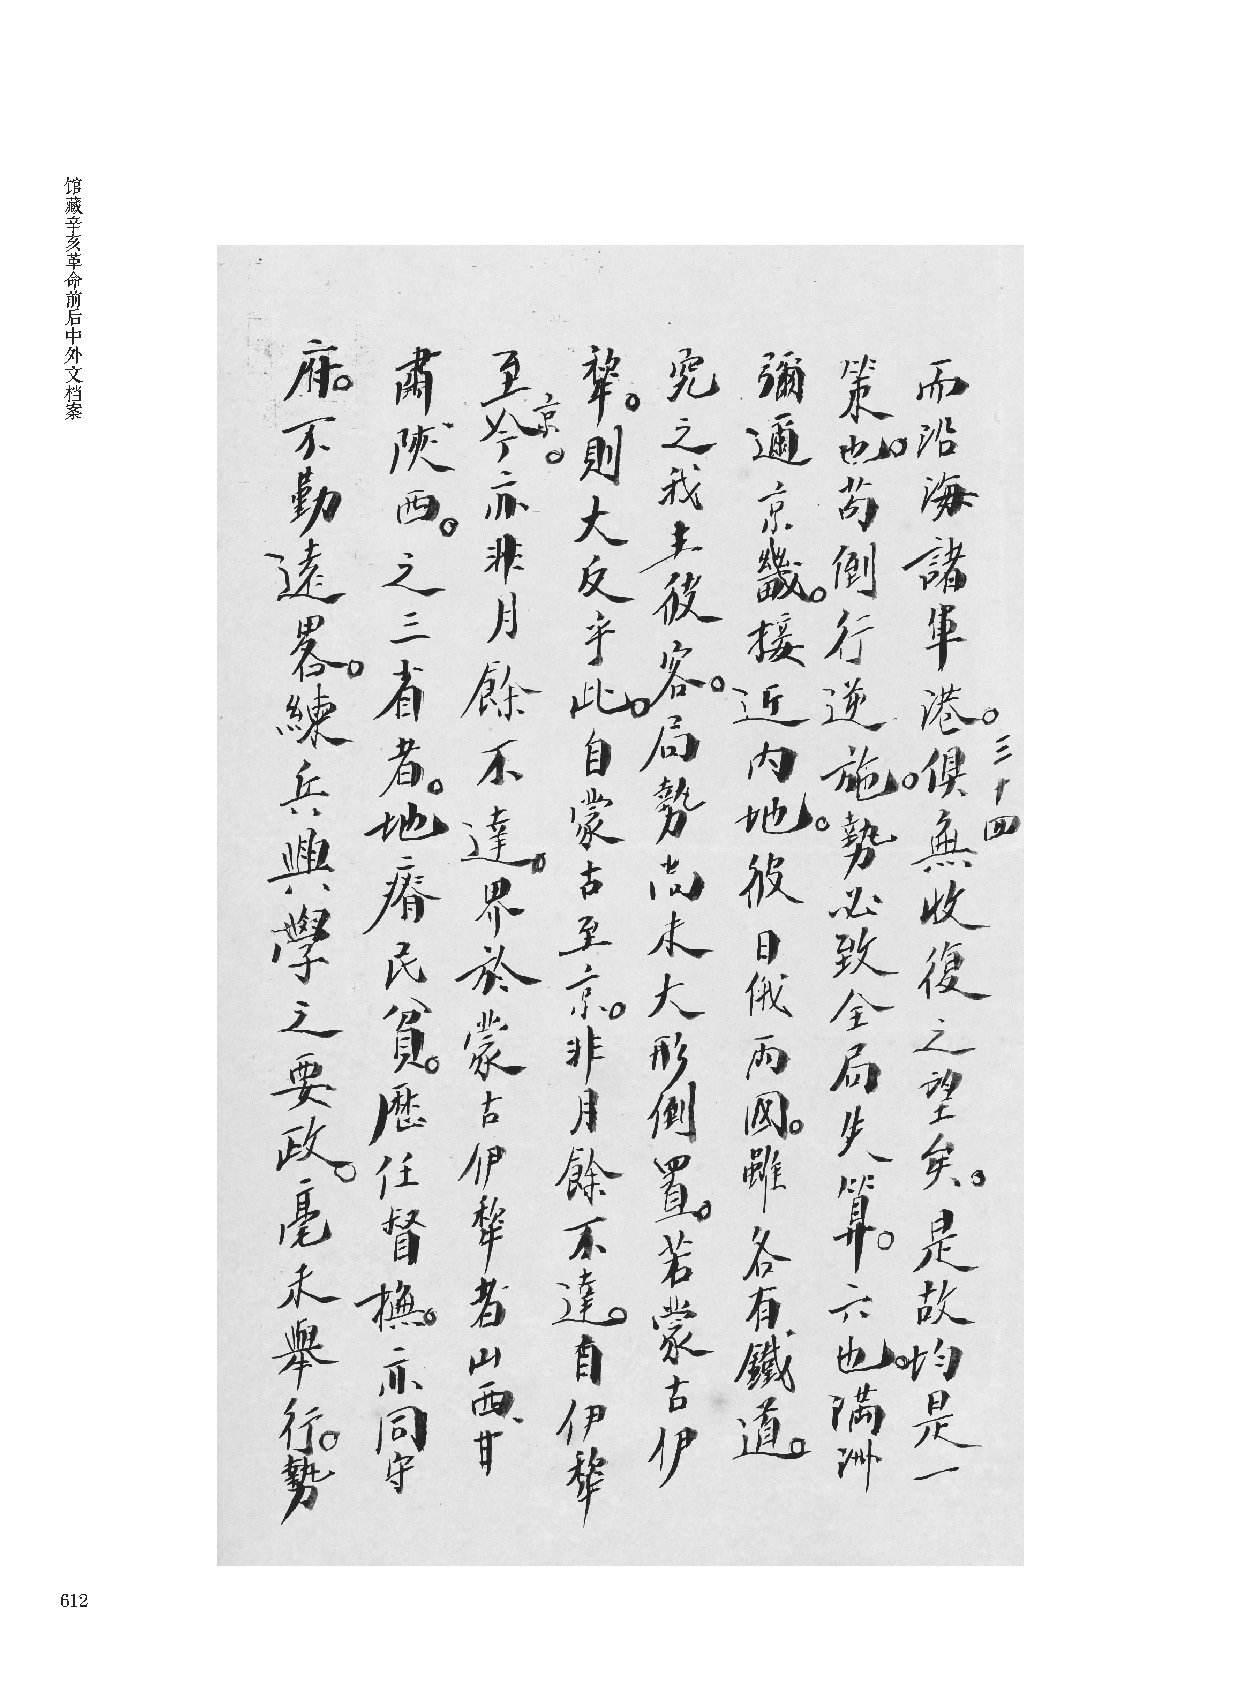 馆藏辛亥革命前后中外文档案
而沿海諸軍港。俱無收復之望矣。是故均是一
三十四
策也。苟倒行逆施。勢必致全局失算。六也。滿洲
彌邇京畿。接近內地。彼日俄兩國。雖各有鐵道。
究之我主彼客。局勢尚未大形倒置。若蒙古伊
犂。則大反乎此。自蒙古至京。非月餘不達。自伊犂
至京。今亦非月餘不達。界於蒙古伊犂者山西、甘
肅陝西。之三省者。地瘠民貧。歷任督撫。亦同守
府。不勤遠畧。練兵興學之要政。毫未舉行。勢
612